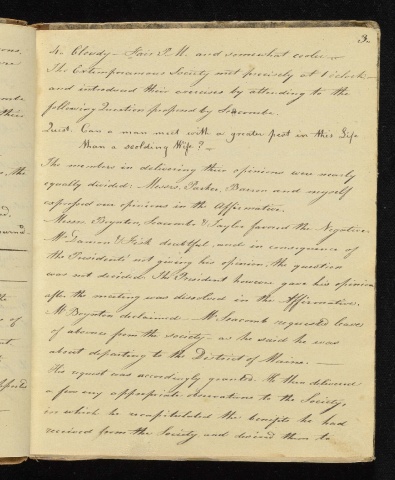 3.
4. Cloudy – Fair P.M. and somewhat cooler –
The Extemporaneous Society met precisely at 1 o'clock –
and introduced their exercises by attending to the
following Question proposed by Seacombe.
Quest. Can a man meet with a greater pest in this Life
than a scolding Wife? –
The members in delivering their opinions were nearly
equally divided: Messrs. Parker, Barron and myself
expressed our opinions in the Affirmative.
Messrs Boynton, Seacombe & Taylor favored the Negative.
& Fisk doubtful, and in consequence of
the Presidents' not giving his opinion, the question
was not decided. The President however gave his opinion
after the meeting was dissolved in the Affirmative.
Mr Boynton declaimed – Mr Seacomb requested leave
of absence from the society – as he said he was
about departing to the District of Maine. –
His request was accordingly granted. He then delivered
a few very appropriate observations to the Society,
in which he recapitulated the benefits he had
received from the Society, and desired them to